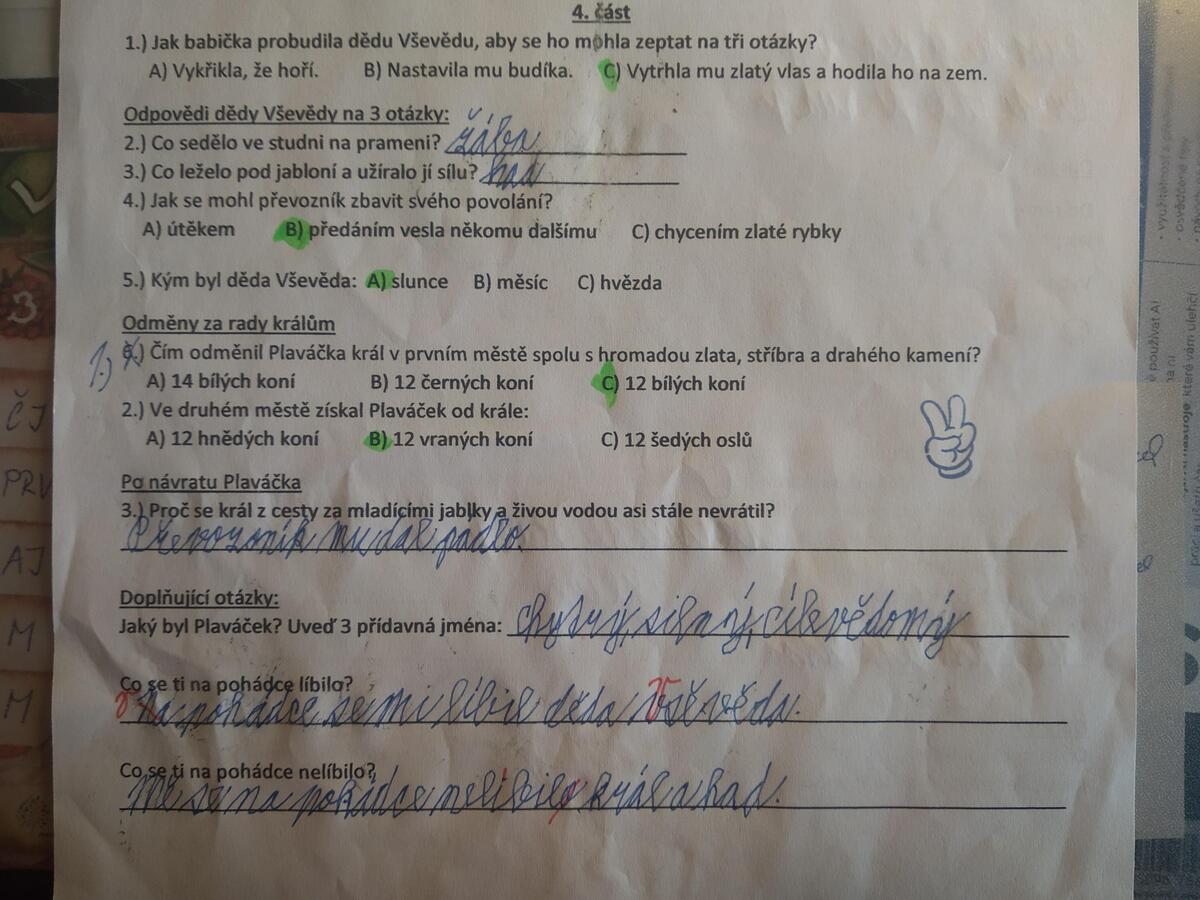 4. část
1.) Jak babička probudila dědu Vševědu, aby se ho mohla zeptat na tři otázky?
A) Vykřikla, že hoří. B) Nastavila mu budíka. C) Vytrhla mu zlatý vlas a hodila ho na zem.
Odpovědi dědy Vševědy na 3 otázky:
2.) Co sedělo ve studni na prameni? žába
3.) Co leželo pod jabloní a užíralo jí sílu? had
4.) Jak se mohl převozník zbavit svého povolání?
A) útěkem B) předáním vesla někomu dalšímu C) chycením zlaté rybky
5.) Kým byl děda Vševěda: A) slunce B) měsíc C) hvězda
Odměny za rady králům
1.) 6.) Čím odměnil Plaváčka král v prvním městě spolu s hromadou zlata, stříbra a drahého kamení?
A) 14 bílých koní B) 12 černých koní C) 12 bílých koní
2.) Ve druhém městě získal Plaváček od krále:
A) 12 hnědých koní B) 12 vraných koní C) 12 šedých oslů
Po návratu Plaváčka
3.) Proč se král z cesty za mladícími jablky a živou vodou asi stále nevrátil?
Převozník mu dal pádlo.
Doplňující otázky:
Jaký byl Plaváček? Uveď 3 přídavná jména: chytrý, silný, cílevědomý
Co se ti na pohádce líbilo?
Na pohádce se mi líbil děda Vševěda.
Co se ti na pohádce nelíbilo?
Mě se na pohádce nelíbilo král a had.
3
ČJ
PRV
AJ
M
M